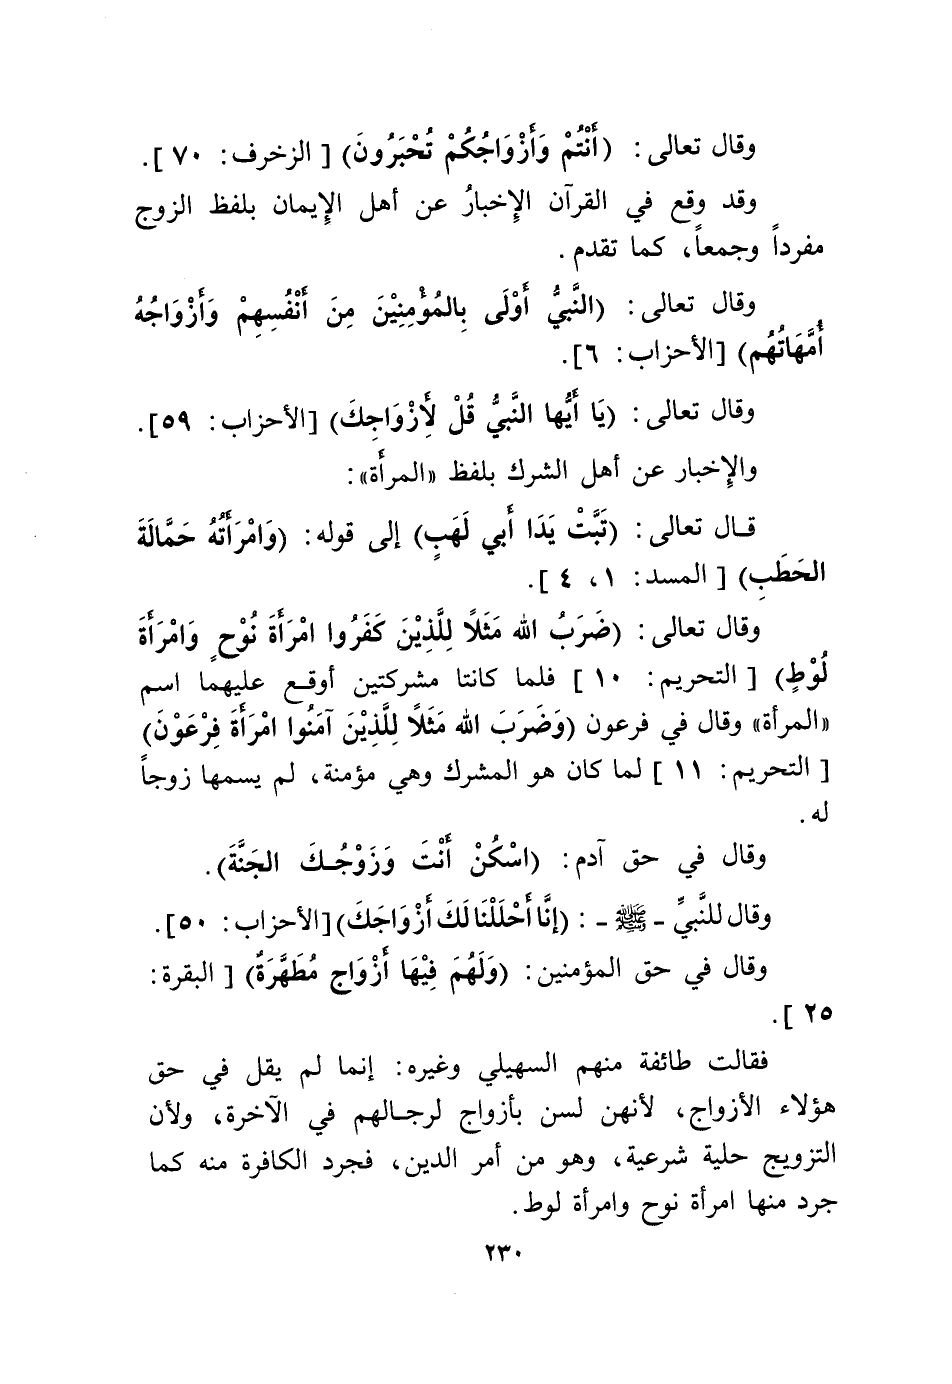 وقال تعالى: (أَنْتُمْ وَأَزْوَاجُكُمْ تُحْبَرُونَ) [ الزخرف: ٧٠ ].
وقد وقع في القرآن الإِخبارُ عن أهل الإِيمان بلفظ الزوج
مفرداً وجمعاً، كما تقدم .
وقال تعالى: (النَّبيُّ أَوْلَى بِالمُؤْمِنِيْنَ مِنَ أَنْفُسِهِمْ وَأَزْوَاجُهُ
أُمَّهَاتُهُم) [الأحزاب: ٦].
وقال تعالى: (يَا أَيُّها النَّبيُّ قُلْ لَأَزْوَاجِكَ) [الأحزاب: ٥٩].
والإِخبار عن أهل الشرك بلفظ «المرأَة»:
قـال تعالى: (تَبَّتْ يَدَا أَبي لَهَبٍ) إلى قوله: (وَامْرَأَتُهُ حَمَّالَةَ
الحَطَبِ) [ المسد: ١، ٤ ].
وقال تعالى: (ضَرَبُ الله مَثَلاً لِلَّذِيْنَ كَفَرُوا امْرَأَةَ نُوْحٍ وَامْرَأَةَ
لُوْطٍ) [ التحريم: ١٠ ] فلما كانتا مشركتين أوقـع عليهما اسم
«المرأة» وقال في فرعون (وَضَرَبَ الله مَثَلاً لِلَّذِيْنَ آمَنُوا امْرَأَةَ فِرْعَوْنَ)
[ التحريم: ١١ ] لما كان هو المشرك وهي مؤمنة، لم يسمها زوجاً
له .
وقال في حق آدم: (اسْكُنْ أَنْتَ وَزَوْجُـكَ الجَنَّةَ).
وقال للنَّبيِّ ـ ﷺ ـ : (إِنَّا أَحْلَلْنَا لَكَ أَزْوَاجَكَ) [الأحزاب: ٥٠].
وقال في حق المؤمنين: (وَلَهُمَ فِيْهَا أَزْوَاج مُطَهَّرَةٌ) [ البقرة:
٢٥ ].
فقالت طائفة منهم السهيلي وغيره: إنما لم يقل في حق
هؤلاء الأزواج، لأنهن لسن بأزواج لرجـالهم في الآخرة، ولأن
التزويج حلية شرعية، وهو من أمر الدين، فجرد الكافرة منه كما
جرد منها امرأة نوح وامرأة لوط.
٢٣٠